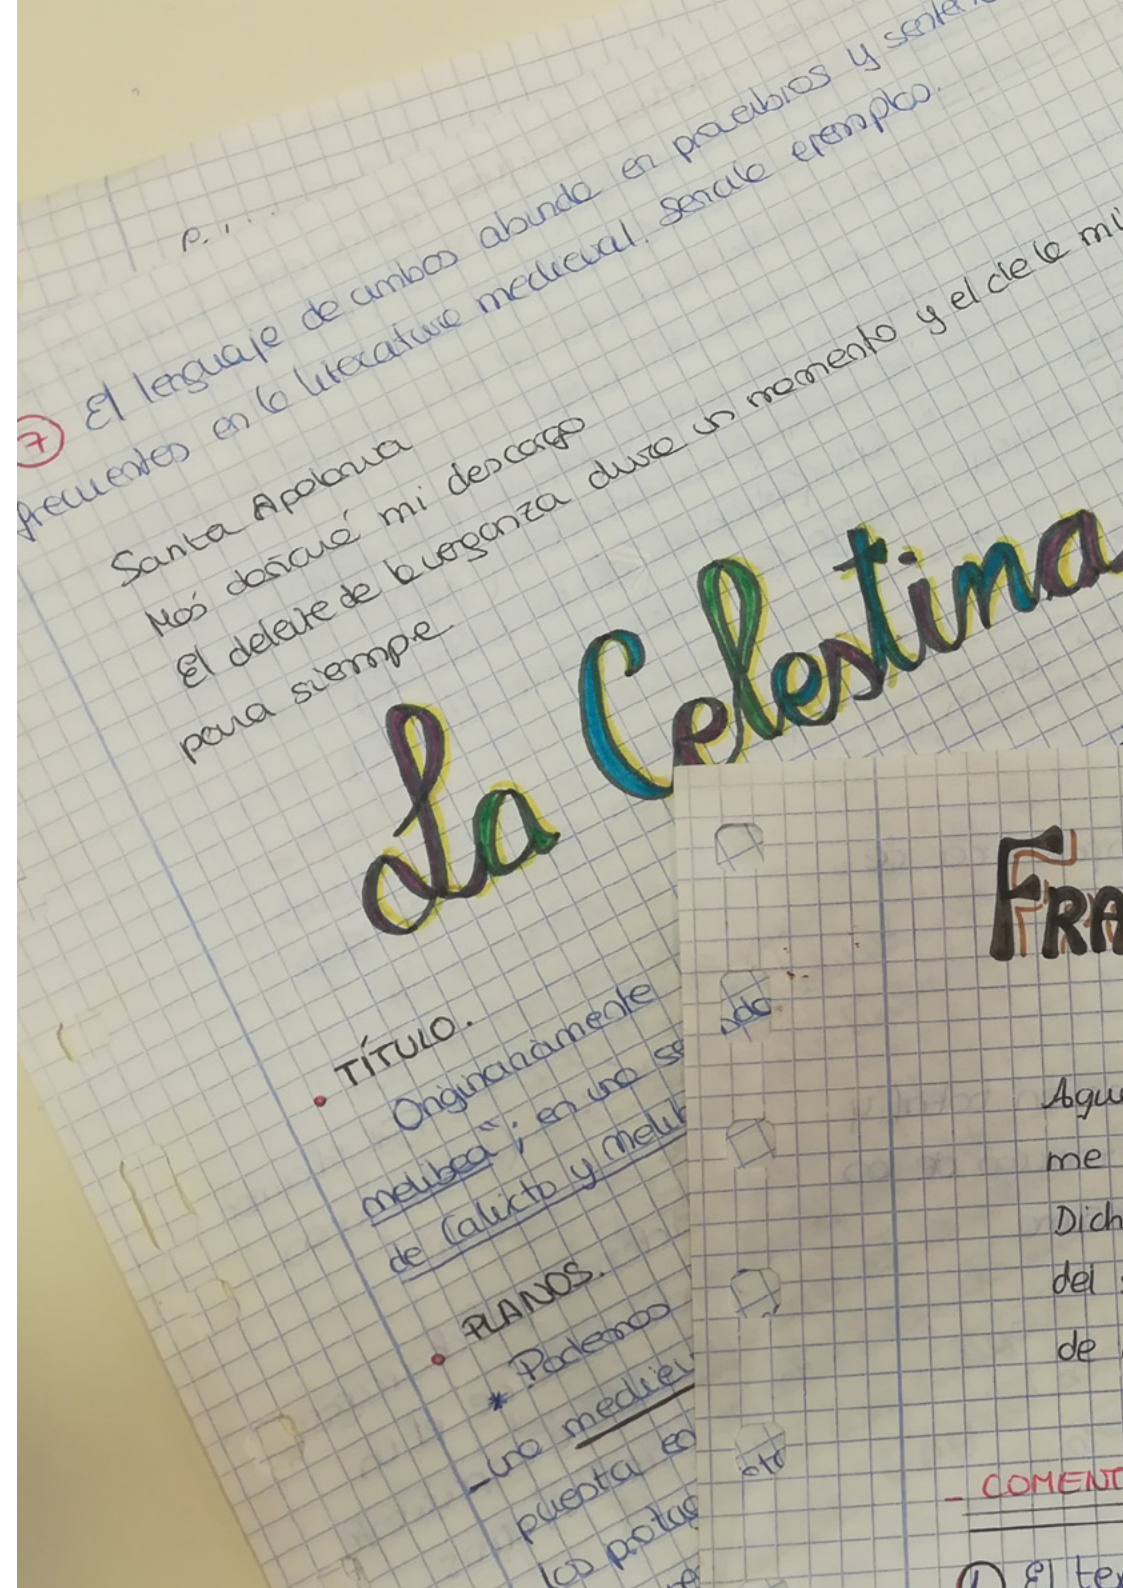 7 El lenguaje de ambos abunda en proverbios y
frecuentes en la literatura medieval. Señala ejemplos.
Santa Apolonia
Más dañaría mi descargo
El deleite de la venganza dura un momento y el de la mi
para siempre
La Celestina
• TÍTULO.
Originariamente
melibea"; en una se
de Calixto y Melib
• PLANOS.
* Podemos
- una mediev
puesta en
los protag
ndo
otr
FRA
Agu
me
Dich
del s
de
- COMENT
1) El te